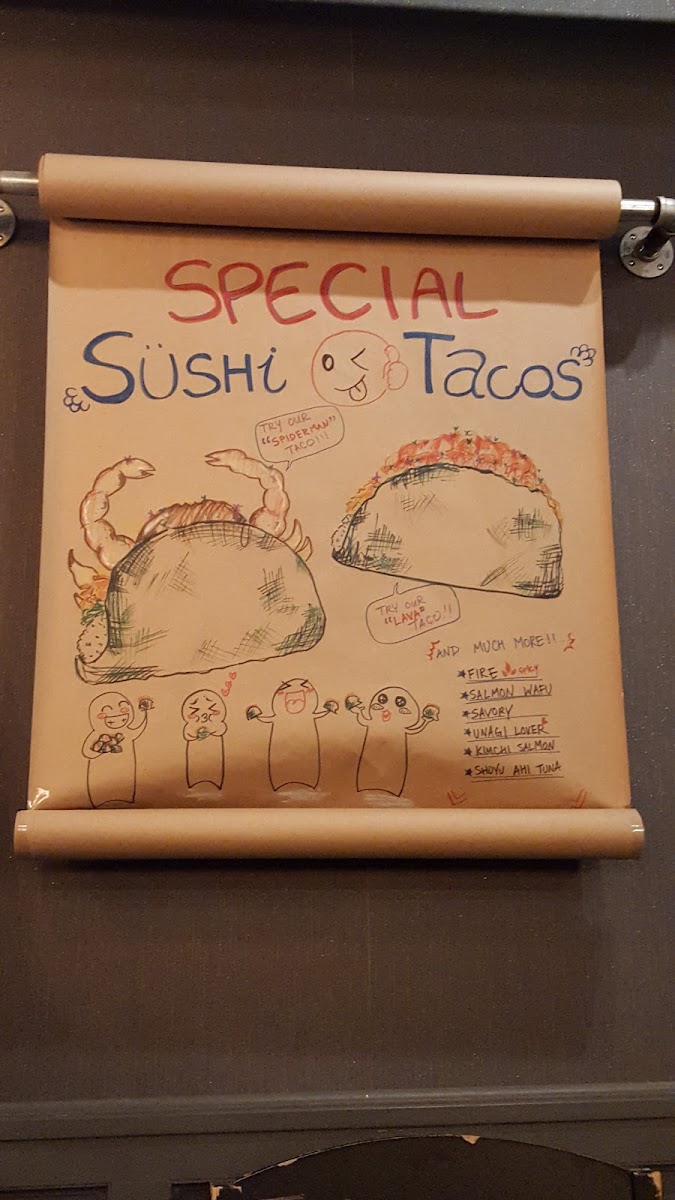 SPECIAL
SÜSHi TACOS
TRY OUR
"SPIDERMAN"
TACO!!!
TRY OUR
"LAVA"
TACO!!
AND MUCH MORE!!
★FIRE SPICY
★SALMON WAFU
★SAVORY
★UNAGI LOVER
★KIMCHI SALMON
★SHOYU AHI TUNA